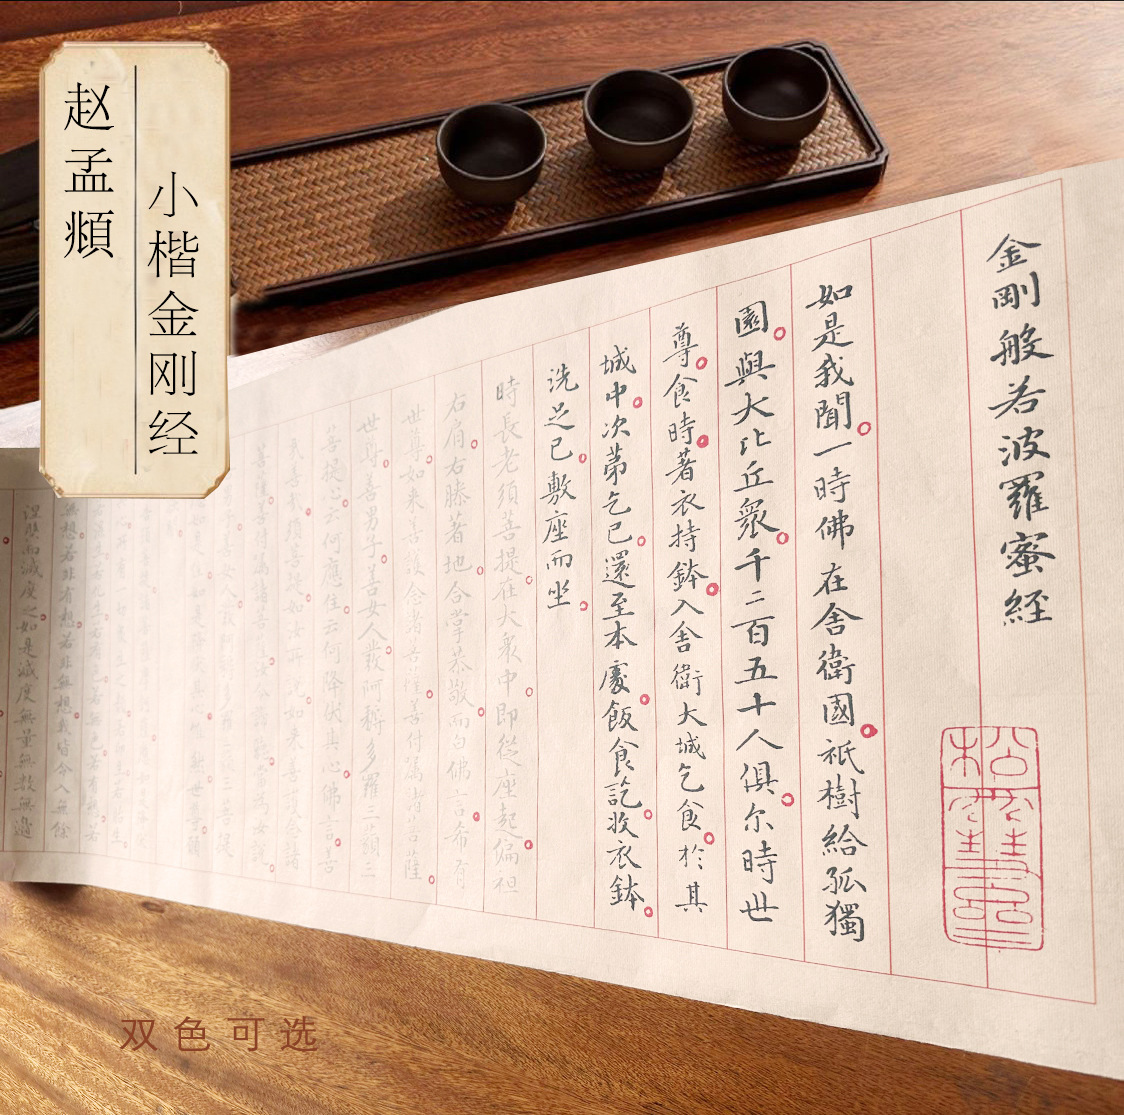 赵孟頫
小楷金刚经
金剛般若波羅蜜經
如是我聞一時佛在舍衛國祇樹給孤獨
園與大比丘衆千二百五十人俱尔時世
尊食時著衣持鉢入舍衛大城乞食於其
城中次苐乞已還至本處飯食訖收衣鉢
洗足已敷座而坐
時長老須菩提在大衆中即從座起偏袒
右肩右膝著地合掌恭敬而白佛言希有
世尊如来善護念諸菩薩善付属諸菩薩
世尊善男子善女人發阿耨多羅三藐三
菩提心云何應住云何降伏其心佛言善
無想若非有想若非無想我皆令入無餘
涅槃而滅度之如是滅度無量無數無邊
双色可选